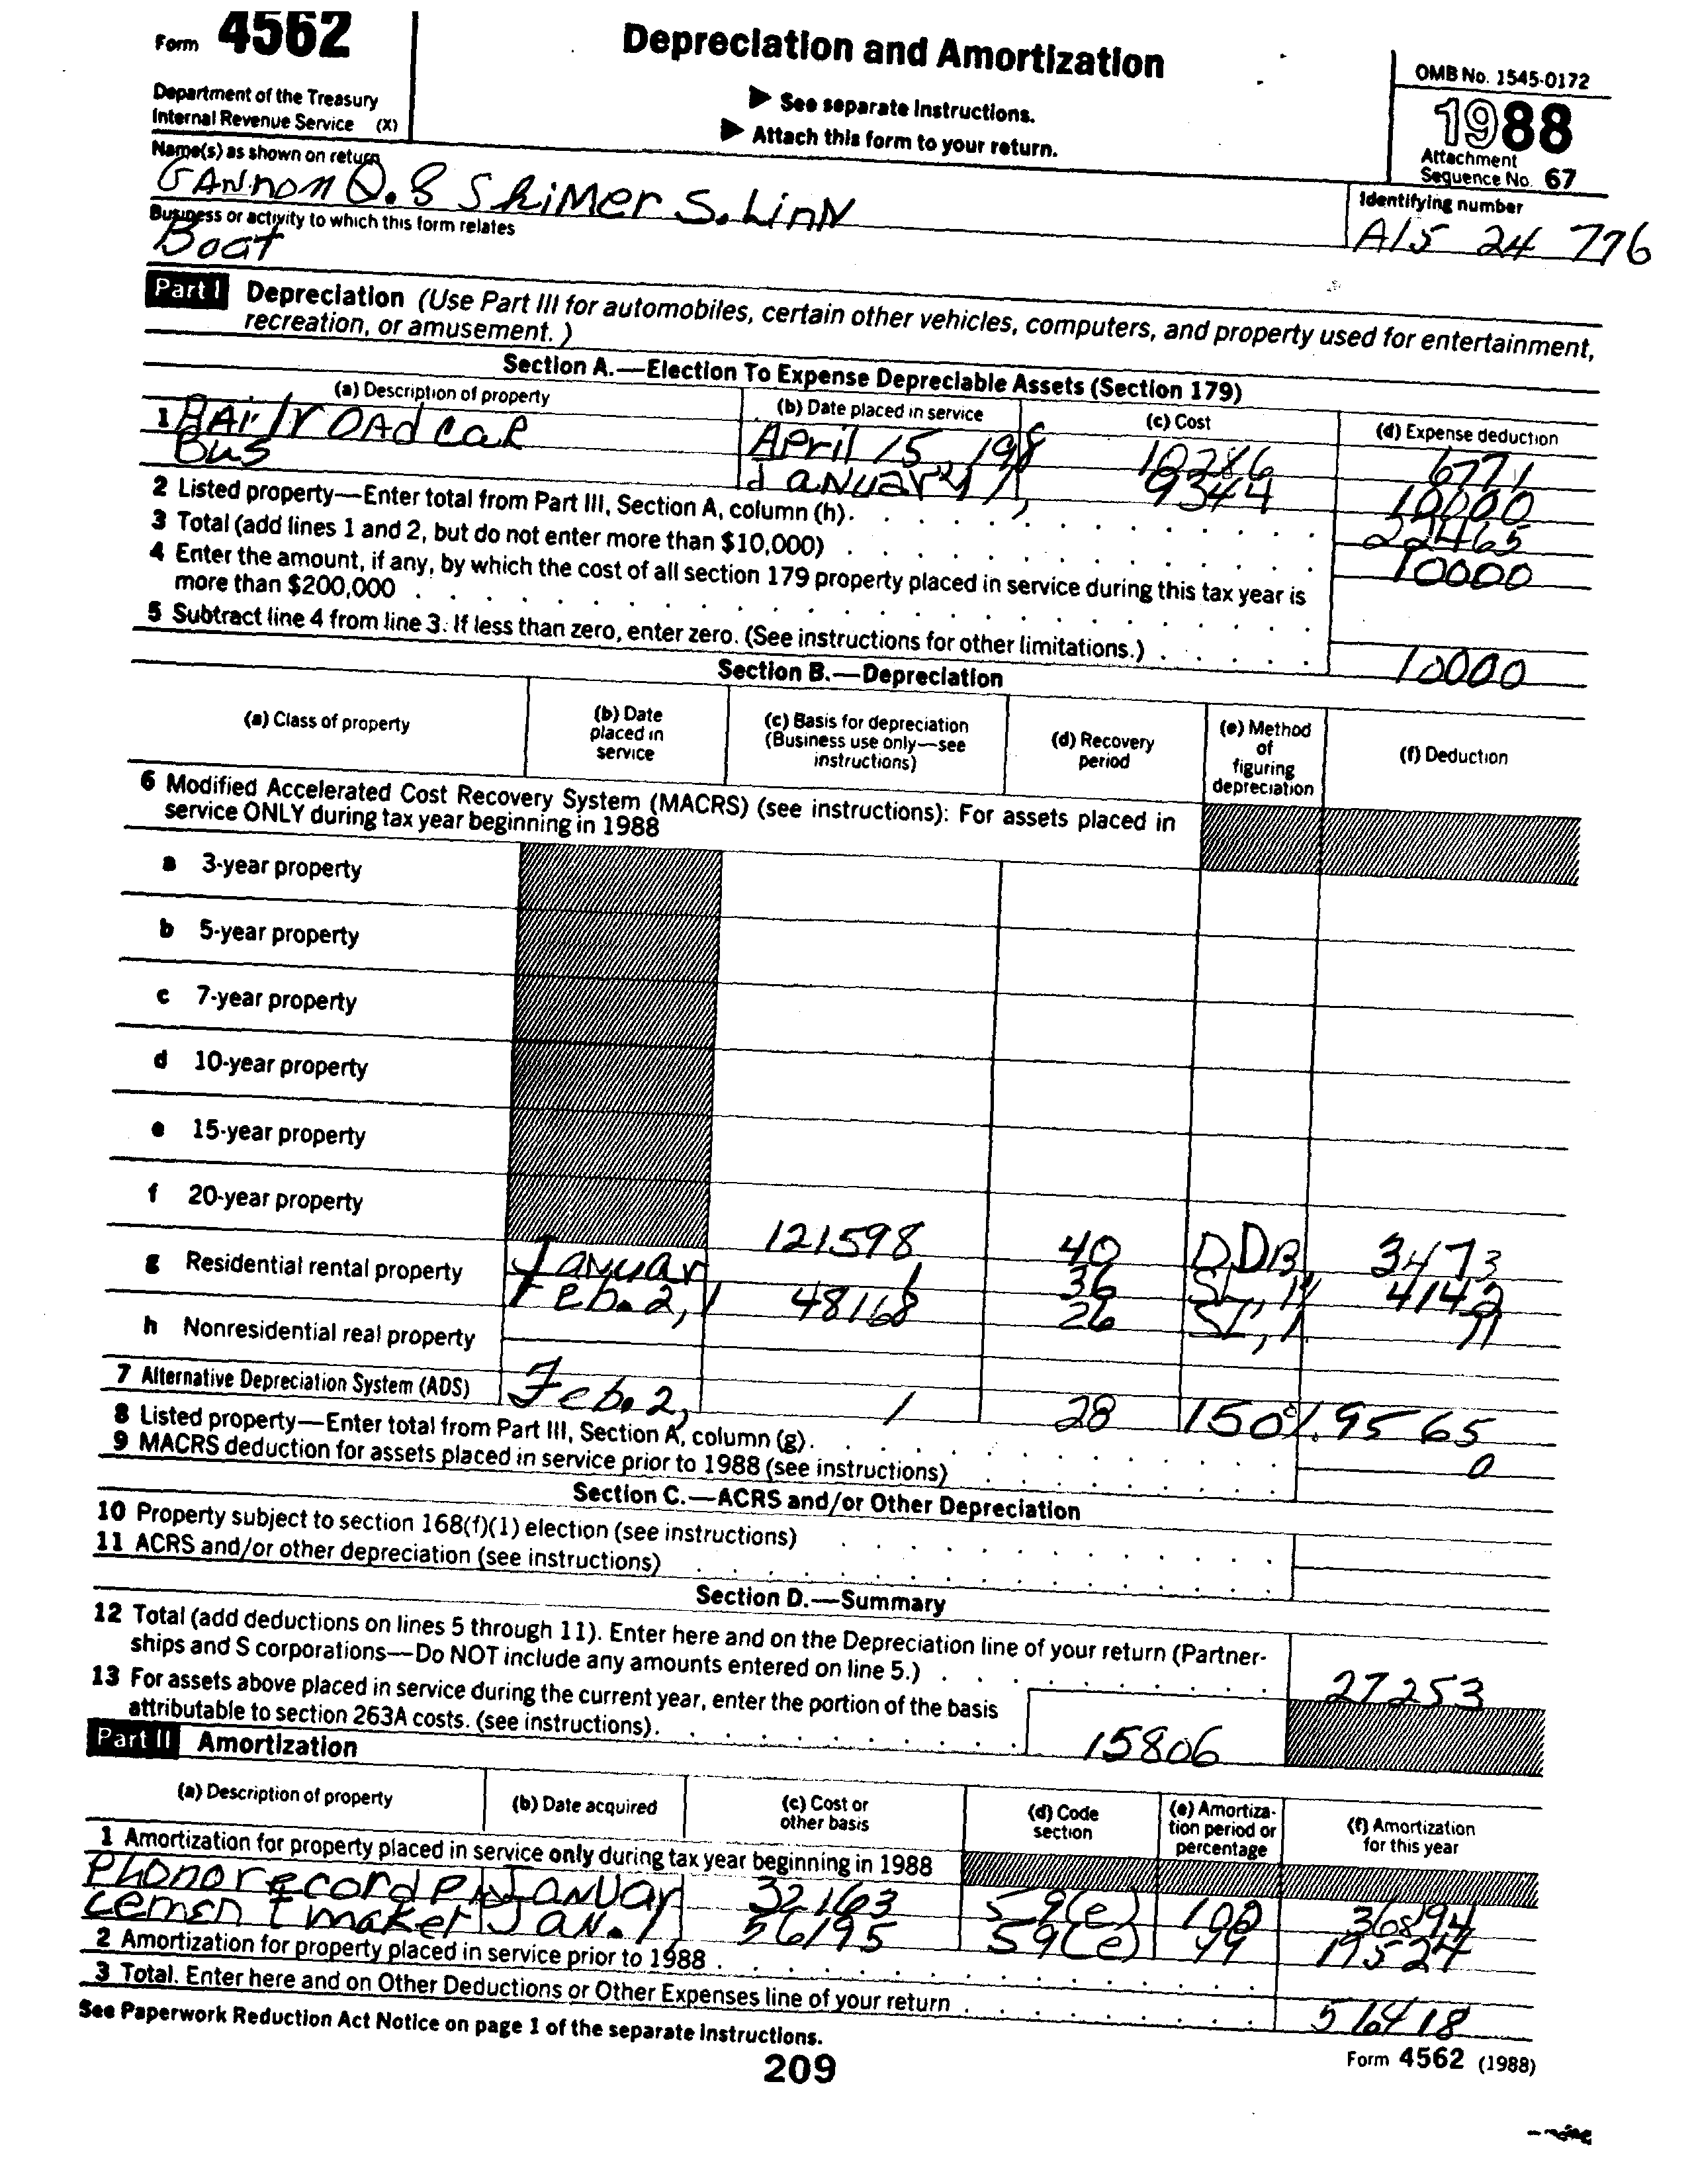 Form 4562
Department of the Treasury
Internal Revenue Service (X)
Depreciation and Amortization
▶ See separate Instructions.
▶ Attach this form to your return.
OMB No. 1545-0172
1988
Attachment
Sequence No. 67
Name(s) as shown on return
GANNON Q. & SkiMer S. LinN
Identifying number
A15 24 776
Business or activity to which this form relates
Boat
Part I Depreciation (Use Part III for automobiles, certain other vehicles, computers, and property used for entertainment,
recreation, or amusement.)
Section A.—Election To Expense Depreciable Assets (Section 179)
(a) Description of property (b) Date placed in service (c) Cost (d) Expense deduction
1 RAilrOAd caR April 15, 198 10286 6771
Bus January 1, 9344 10000
2 Listed property—Enter total from Part III, Section A, column (h). 22465
3 Total (add lines 1 and 2, but do not enter more than $10,000) 10000
4 Enter the amount, if any, by which the cost of all section 179 property placed in service during this tax year is
more than $200,000
5 Subtract line 4 from line 3. If less than zero, enter zero. (See instructions for other limitations.) 10000
Section B.—Depreciation
(a) Class of property
(b) Date
placed in
service
(c) Basis for depreciation
(Business use only—see
instructions)
(d) Recovery
period
(e) Method
of
figuring
depreciation
(f) Deduction
6 Modified Accelerated Cost Recovery System (MACRS) (see instructions): For assets placed in
service ONLY during tax year beginning in 1988
a 3-year property
b 5-year property
c 7-year property
d 10-year property
e 15-year property
f 20-year property
121598 40 DDB 3473
g Residential rental property Januar 1 36 SL, 4142
Feb. 2, 48168 26 SL, 71
h Nonresidential real property
7 Alternative Depreciation System (ADS) Feb. 2, 1 28 150% 9565
8 Listed property—Enter total from Part III, Section A, column (g). 0
9 MACRS deduction for assets placed in service prior to 1988 (see instructions)
Section C.—ACRS and/or Other Depreciation
10 Property subject to section 168(f)(1) election (see instructions)
11 ACRS and/or other depreciation (see instructions)
Section D.—Summary
12 Total (add deductions on lines 5 through 11). Enter here and on the Depreciation line of your return (Partner-
ships and S corporations—Do NOT include any amounts entered on line 5.) 27253
13 For assets above placed in service during the current year, enter the portion of the basis
attributable to section 263A costs. (see instructions). 15806
Part II Amortization
(a) Description of property (b) Date acquired
(c) Cost or
other basis
(d) Code
section
(e) Amortiza-
tion period or
percentage
(f) Amortization
for this year
1 Amortization for property placed in service only during tax year beginning in 1988
Phonorecord JANUAr 32163 59(e) 100 36894
cement maker JAN. 1, 56195 59(e) 99 19524
2 Amortization for property placed in service prior to 1988
3 Total. Enter here and on Other Deductions or Other Expenses line of your return 56418
See Paperwork Reduction Act Notice on page 1 of the separate Instructions.
209
Form 4562 (1988)